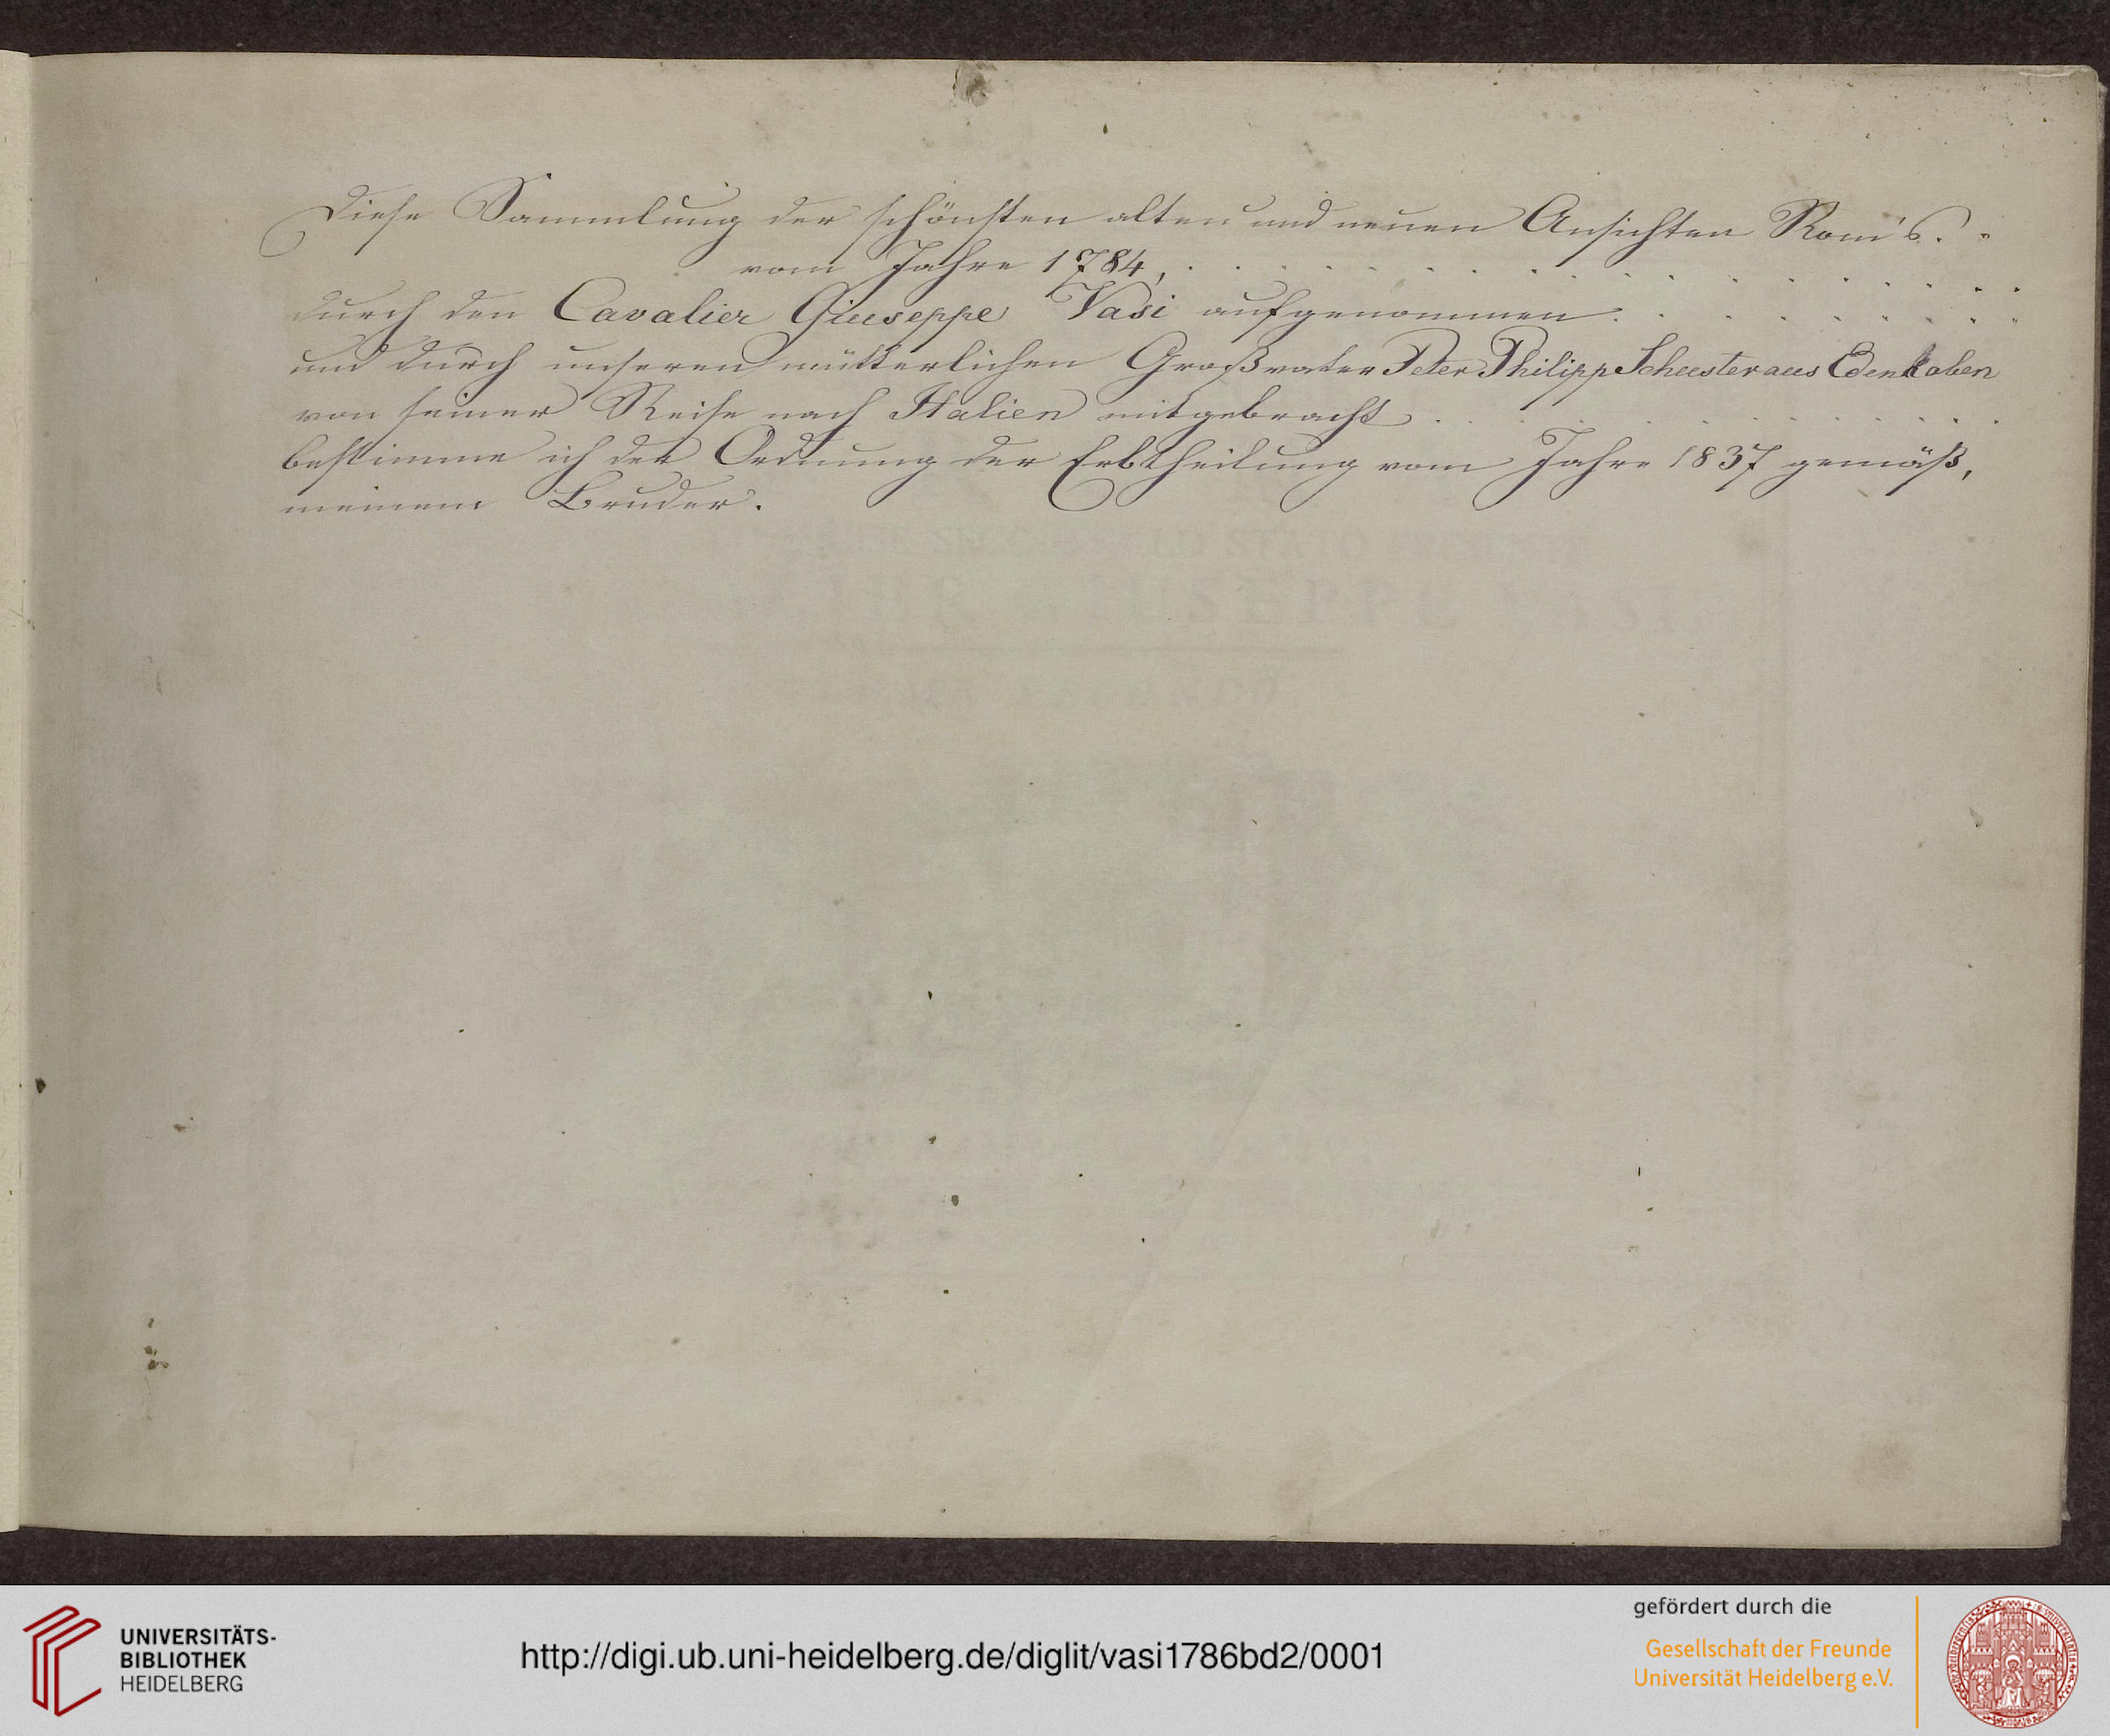 Diese Sammlung der schönsten alten und neuen Ansichten Rom's. .
vom Jahre 1784, . . . . . . . . . . . . . . . . . .
durch den Cavalier Giuseppe Vasi aufgenommen . . . . . . . . .
und durch unseren mütterlichen Großvater Peter Philipp Schuster aus Edenkoben
von seiner Reise nach Italien mitgebracht . . . . . . . . . . .
bestimme ich der Ordnung der Erbtheilung vom Jahre 1837 gemäß,
meinem Bruder.
UNIVERSITÄTS-
BIBLIOTHEK
HEIDELBERG
http://digi.ub.uni-heidelberg.de/diglit/vasi1786bd2/0001
gefördert durch die
Gesellschaft der Freunde
Universität Heidelberg e.V.